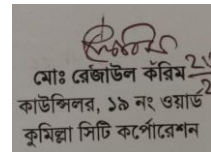 মোঃ রেজাউল করিম
কাউন্সিলর, ১৯ নং ওয়ার্ড
কুমিল্লা সিটি কর্পোরেশন